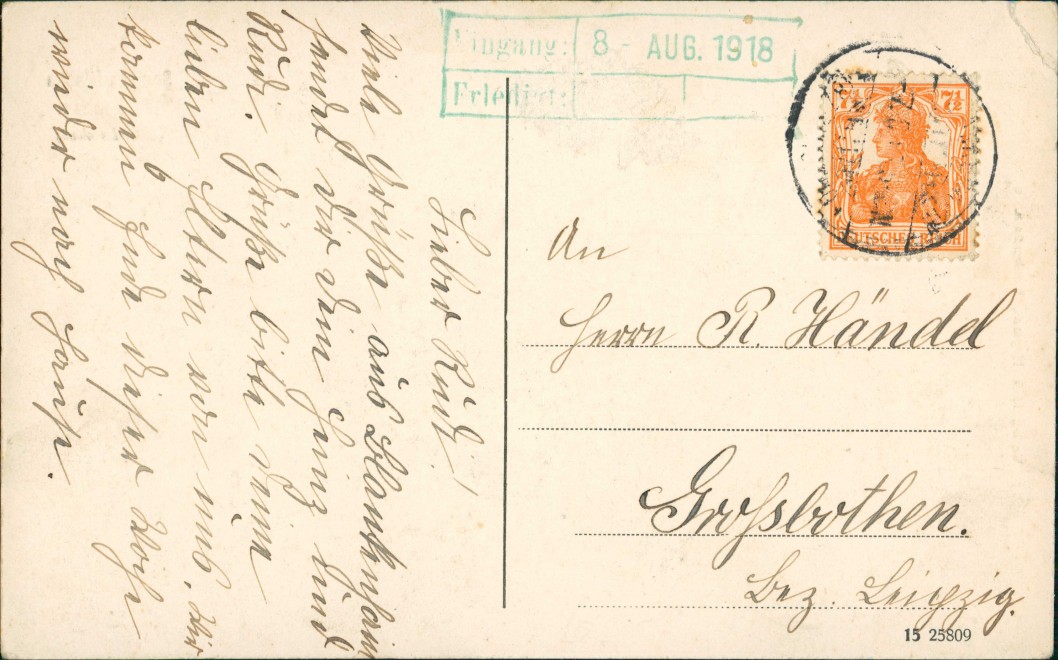 Eingang: 8 - AUG. 1918
Erledigt:
7½ 7½
DEUTSCHES REICH
Lieber Rudi!
Viele Grüße aus Blankenhain
sendet Dir Dein Heinz und
Rudi. Grüße bitte Deine
lieben Eltern von uns. Wir
kommen Ende dieser Woche
wieder nach Hause.
An
Herrn R. Händel
Grossbothen.
Bez. Leipzig.
15 25809